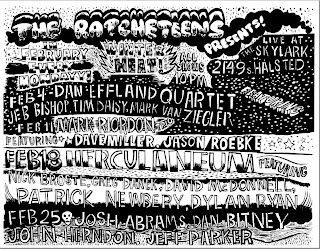 THE RATCHETEENS
PRESENTS!
LIVE AT
THE SKYLARK
2149 S HALSTED
FEBRUARY
MONDAYS
FEB 4 DAN EFFLAND QUARTET
JEB BISHOP TIM DAISY MARK VAN ZIEGLER
FEB 11 MARK RIORDON
FEATURING DAVE MILLER, JASON ROEBKE
FEB 18 HERCULANEUM FEATURING
NICK BROSTE, GREG DANEK, DAVID McDONNELL,
PATRICK NEWBERY, DYLAN RYAN
FEB 25 JOSH ABRAMS DAN BITNEY
JOHN HERNDON JEFF PARKER